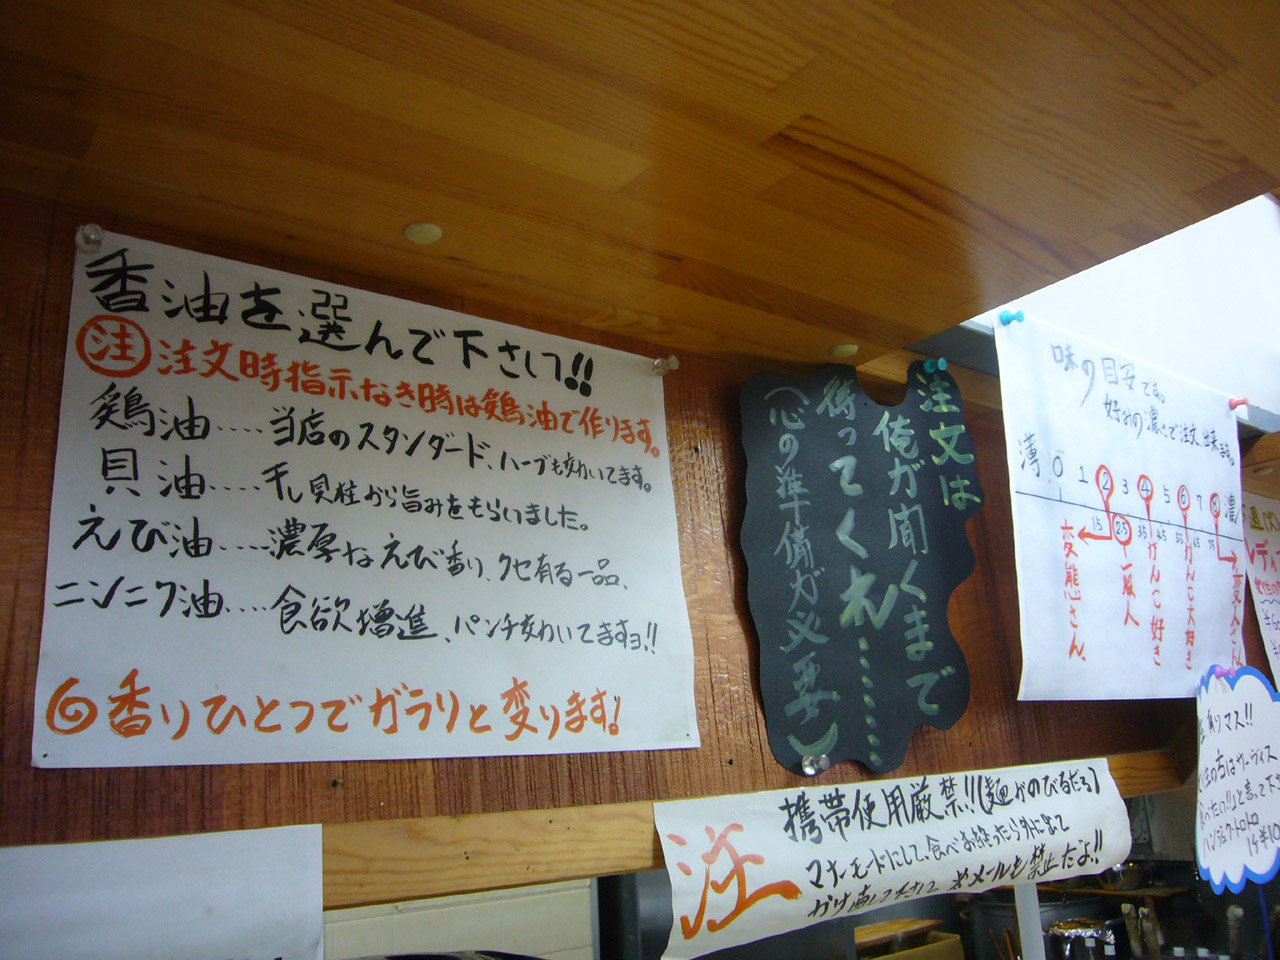 香油を選んで下さい!!
注 注文時指示なき時は鶏油で作ります。
鶏油‥‥当店のスタンダード、ハーブも効いてます。
貝油‥‥干し貝柱から旨みをもらいました。
えび油‥‥濃厚なえび香り、クセ有る一品、
ニンニク油‥‥食欲増進、パンチ効いてますョ!!
香りひとつでガラリと変ります!
注文は
俺が聞くまで
待ってくれ‥‥‥
(心の準備が必要)
味の目安です。
好みの濃さで注文出来ます。
薄 0 1 2 3 4 5 6 7 8 濃
1.5 2.5 3.5 4.5 5.5 6.5 7.5
変態さん、
一般人
がんこ好き
がんこ大好き
変人さん
レディ
有りマス!!
の方はサーヴィス
食べたい!!」と言って下
注
携帯使用厳禁!!(麺がのびるだろ)
マナーモードにして、食べ終ったら外に出て
かけ直して下さい ※メールも禁止だよ!!